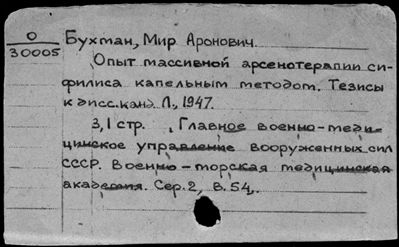 О
30005
Бухман, Мир Аронович.
Опыт массивной арсенотерапии си-
филиса капельным методом. Тезисы
к дисс. канд. Л., 1947.
3,1 стр. , Главное военно-меди-
цинское управление вооруженных сил
СССР. Военно-морская медицинская
академия. Сер. 2, В. 54,.